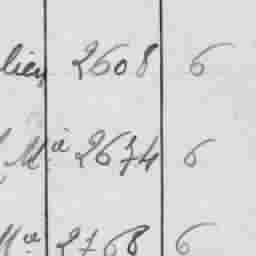 lien 2608 6
Mª 2674 6
Mª 2768 6